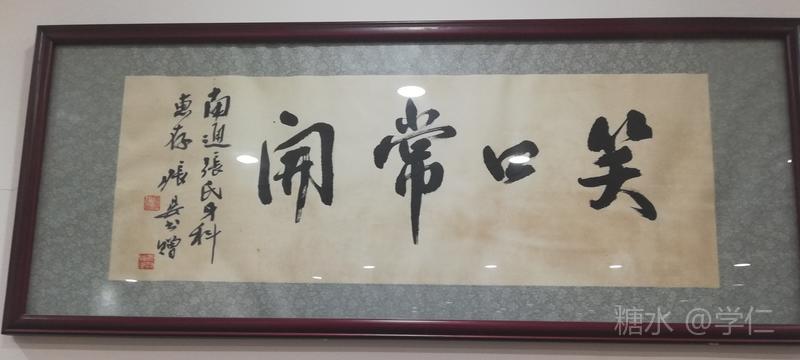 笑口常開
南通張氏牙科
惠存 張
書贈
糖水 @学仁